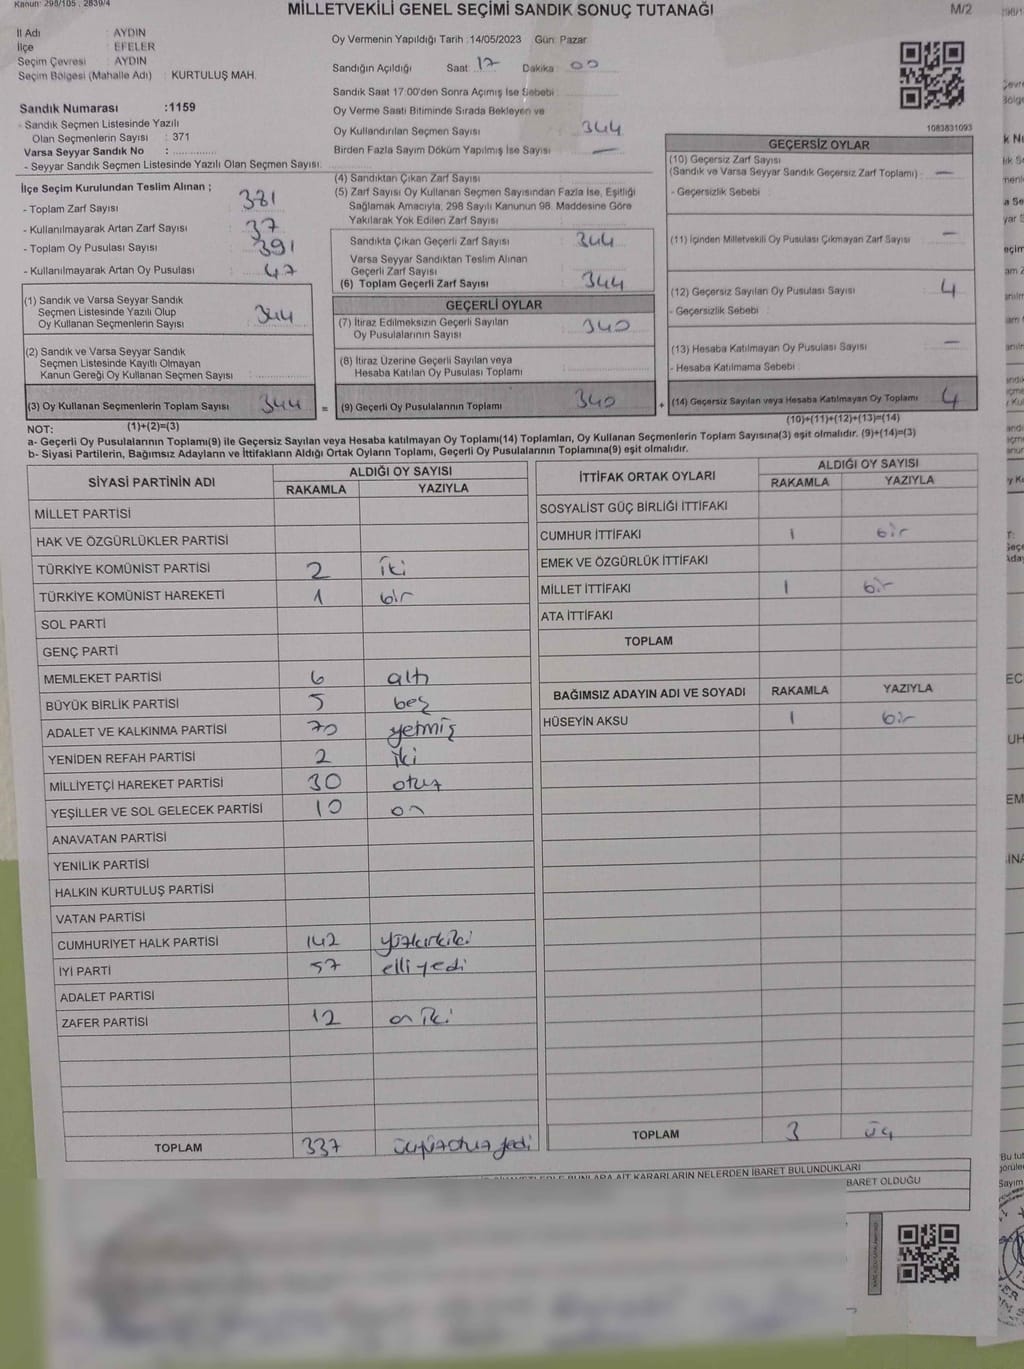 Kanun: 298/105 , 2839/4
MİLLETVEKİLİ GENEL SEÇİMİ SANDIK SONUÇ TUTANAĞI
M/2
İl Adı : AYDIN
İlçe : EFELER
Seçim Çevresi : AYDIN
Seçim Bölgesi (Mahalle Adı) : KURTULUŞ MAH.
Sandık Numarası :1159
- Sandık Seçmen Listesinde Yazılı
Olan Seçmenlerin Sayısı : 371
Varsa Seyyar Sandık No :
- Seyyar Sandık Seçmen Listesinde Yazılı Olan Seçmen Sayısı:
İlçe Seçim Kurulundan Teslim Alınan ;
- Toplam Zarf Sayısı : 381
- Kullanılmayarak Artan Zarf Sayısı : 37
- Toplam Oy Pusulası Sayısı : 391
- Kullanılmayarak Artan Oy Pusulası : 47
(1) Sandık ve Varsa Seyyar Sandık
Seçmen Listesinde Yazılı Olup
Oy Kullanan Seçmenlerin Sayısı : 344
(2) Sandık ve Varsa Seyyar Sandık
Seçmen Listesinde Kayıtlı Olmayan
Kanun Gereği Oy Kullanan Seçmen Sayısı :
(3) Oy Kullanan Seçmenlerin Toplam Sayısı : 344
Oy Vermenin Yapıldığı Tarih :14/05/2023 Gün: Pazar
Sandığın Açıldığı Saat: 17 Dakika : 00
Sandık Saat 17:00'den Sonra Açımış İse Sebebi :
Oy Verme Saati Bitiminde Sırada Bekleyen ve
Oy Kullandırılan Seçmen Sayısı : 344
Birden Fazla Sayım Döküm Yapılmış İse Sayısı : —
(4) Sandıktan Çıkan Zarf Sayısı :
(5) Zarf Sayısı Oy Kullanan Seçmen Sayısından Fazla İse, Eşitliği
Sağlamak Amacıyla, 298 Sayılı Kanunun 98. Maddesine Göre
Yakılarak Yok Edilen Zarf Sayısı :
Sandıkta Çıkan Geçerli Zarf Sayısı : 344
Varsa Seyyar Sandıktan Teslim Alınan
Geçerli Zarf Sayısı :
(6) Toplam Geçerli Zarf Sayısı : 344
GEÇERLİ OYLAR
(7) İtiraz Edilmeksizin Geçerli Sayılan
Oy Pusulalarının Sayısı : 340
(8) İtiraz Üzerine Geçerli Sayılan veya
Hesaba Katılan Oy Pusulası Toplamı :
= (9) Geçerli Oy Pusulalarının Toplamı : 340
1083831093
GEÇERSİZ OYLAR
(10) Geçersiz Zarf Sayısı
(Sandık ve Varsa Seyyar Sandık Geçersiz Zarf Toplamı) : —
- Geçersizlik Sebebi :
(11) İçinden Milletvekili Oy Pusulası Çıkmayan Zarf Sayısı : —
(12) Geçersiz Sayılan Oy Pusulası Sayısı : 4
- Geçersizlik Sebebi :
(13) Hesaba Katılmayan Oy Pusulası Sayısı : —
- Hesaba Katılmama Sebebi :
+ (14) Geçersiz Sayılan veya Hesaba Katılmayan Oy Toplamı : 4
NOT: (1)+(2)=(3)
(10)+(11)+(12)+(13)=(14)
a- Geçerli Oy Pusulalarının Toplamı(9) ile Geçersiz Sayılan veya Hesaba katılmayan Oy Toplamı(14) Toplamları, Oy Kullanan Seçmenlerin Toplam Sayısına(3) eşit olmalıdır. (9)+(14)=(3)
b- Siyasi Partilerin, Bağımsız Adayların ve İttifakların Aldığı Ortak Oyların Toplamı, Geçerli Oy Pusulalarının Toplamına(9) eşit olmalıdır.
SİYASİ PARTİNİN ADI
ALDIĞI OY SAYISI
RAKAMLA YAZIYLA
MİLLET PARTİSİ
HAK VE ÖZGÜRLÜKLER PARTİSİ
TÜRKİYE KOMÜNİST PARTİSİ 2 iki
TÜRKİYE KOMÜNİST HAREKETİ 1 bir
SOL PARTİ
GENÇ PARTİ
MEMLEKET PARTİSİ 6 altı
BÜYÜK BİRLİK PARTİSİ 5 beş
ADALET VE KALKINMA PARTİSİ 70 yetmiş
YENİDEN REFAH PARTİSİ 2 iki
MİLLİYETÇİ HAREKET PARTİSİ 30 otuz
YEŞİLLER VE SOL GELECEK PARTİSİ 10 on
ANAVATAN PARTİSİ
YENİLİK PARTİSİ
HALKIN KURTULUŞ PARTİSİ
VATAN PARTİSİ
CUMHURİYET HALK PARTİSİ 142 yüzkırkiki
İYİ PARTİ 57 elliyedi
ADALET PARTİSİ
ZAFER PARTİSİ 12 on iki
TOPLAM 337 üçyüzotuz yedi
İTTİFAK ORTAK OYLARI
ALDIĞI OY SAYISI
RAKAMLA YAZIYLA
SOSYALİST GÜÇ BİRLİĞİ İTTİFAKI
CUMHUR İTTİFAKI 1 bir
EMEK VE ÖZGÜRLÜK İTTİFAKI
MİLLET İTTİFAKI 1 bir
ATA İTTİFAKI
TOPLAM
BAĞIMSIZ ADAYIN ADI VE SOYADI RAKAMLA YAZIYLA
HÜSEYİN AKSU 1 bir
TOPLAM 3 üç
BUNLARA AİT KARARLARIN NELERDEN İBARET BULUNDUKLARI
BARET OLDUĞU